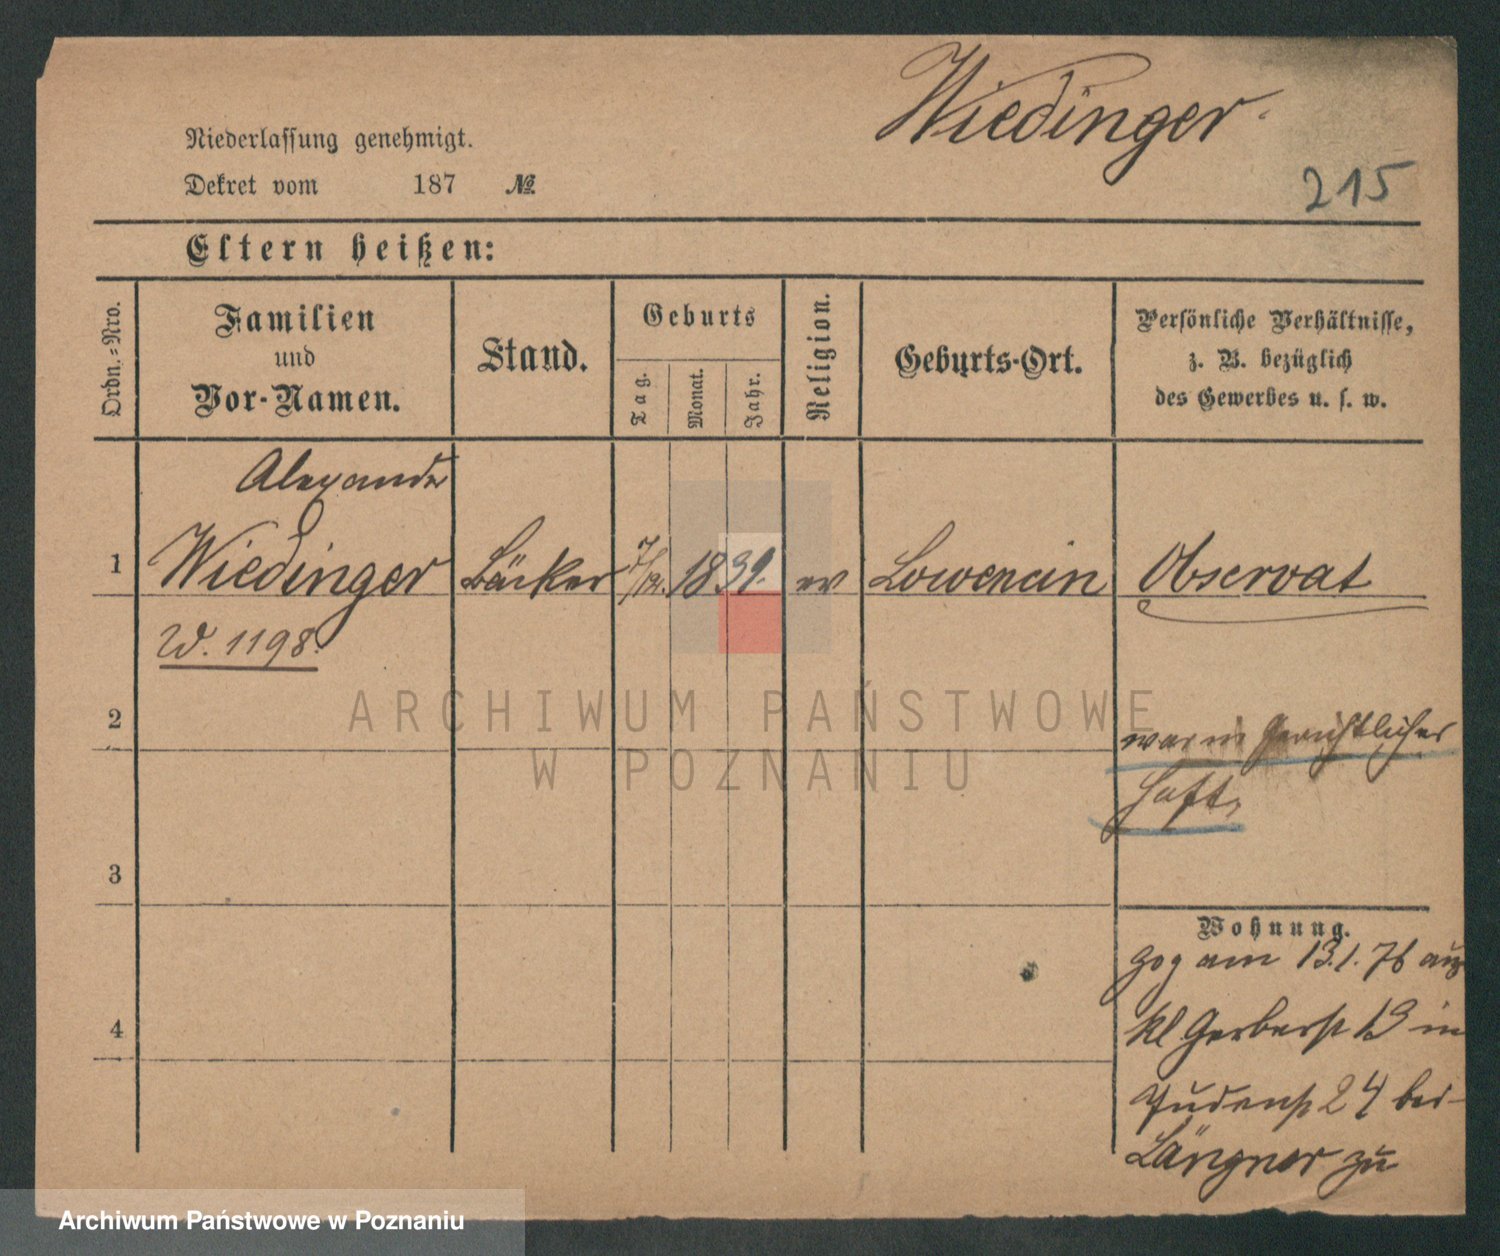 Wiedinger.
215
Niederlassung genehmigt.
Dekret vom 187 №
Eltern heißen:
Ordn.=Nro.
Familien
und
Vor-Namen.
Stand.
Geburts
Tag.
Monat.
Jahr.
Religion.
Geburts-Ort.
Persönliche Verhältnisse,
z. B. bezüglich
des Gewerbes u. s. w.
Alexander
1 Wiedinger Bäcker 7/12. 1839. ev Lowencin Observat
W. 1198.
2
war in gerichtlicher
Haft,
3
Wohnung.
zog am 13.1.76 aus
4
kl Gerberst 13 in
Judenst 24 bei
Längner zu
ARCHIWUM PAŃSTWOWE
W POZNANIU
Archiwum Państwowe w Poznaniu